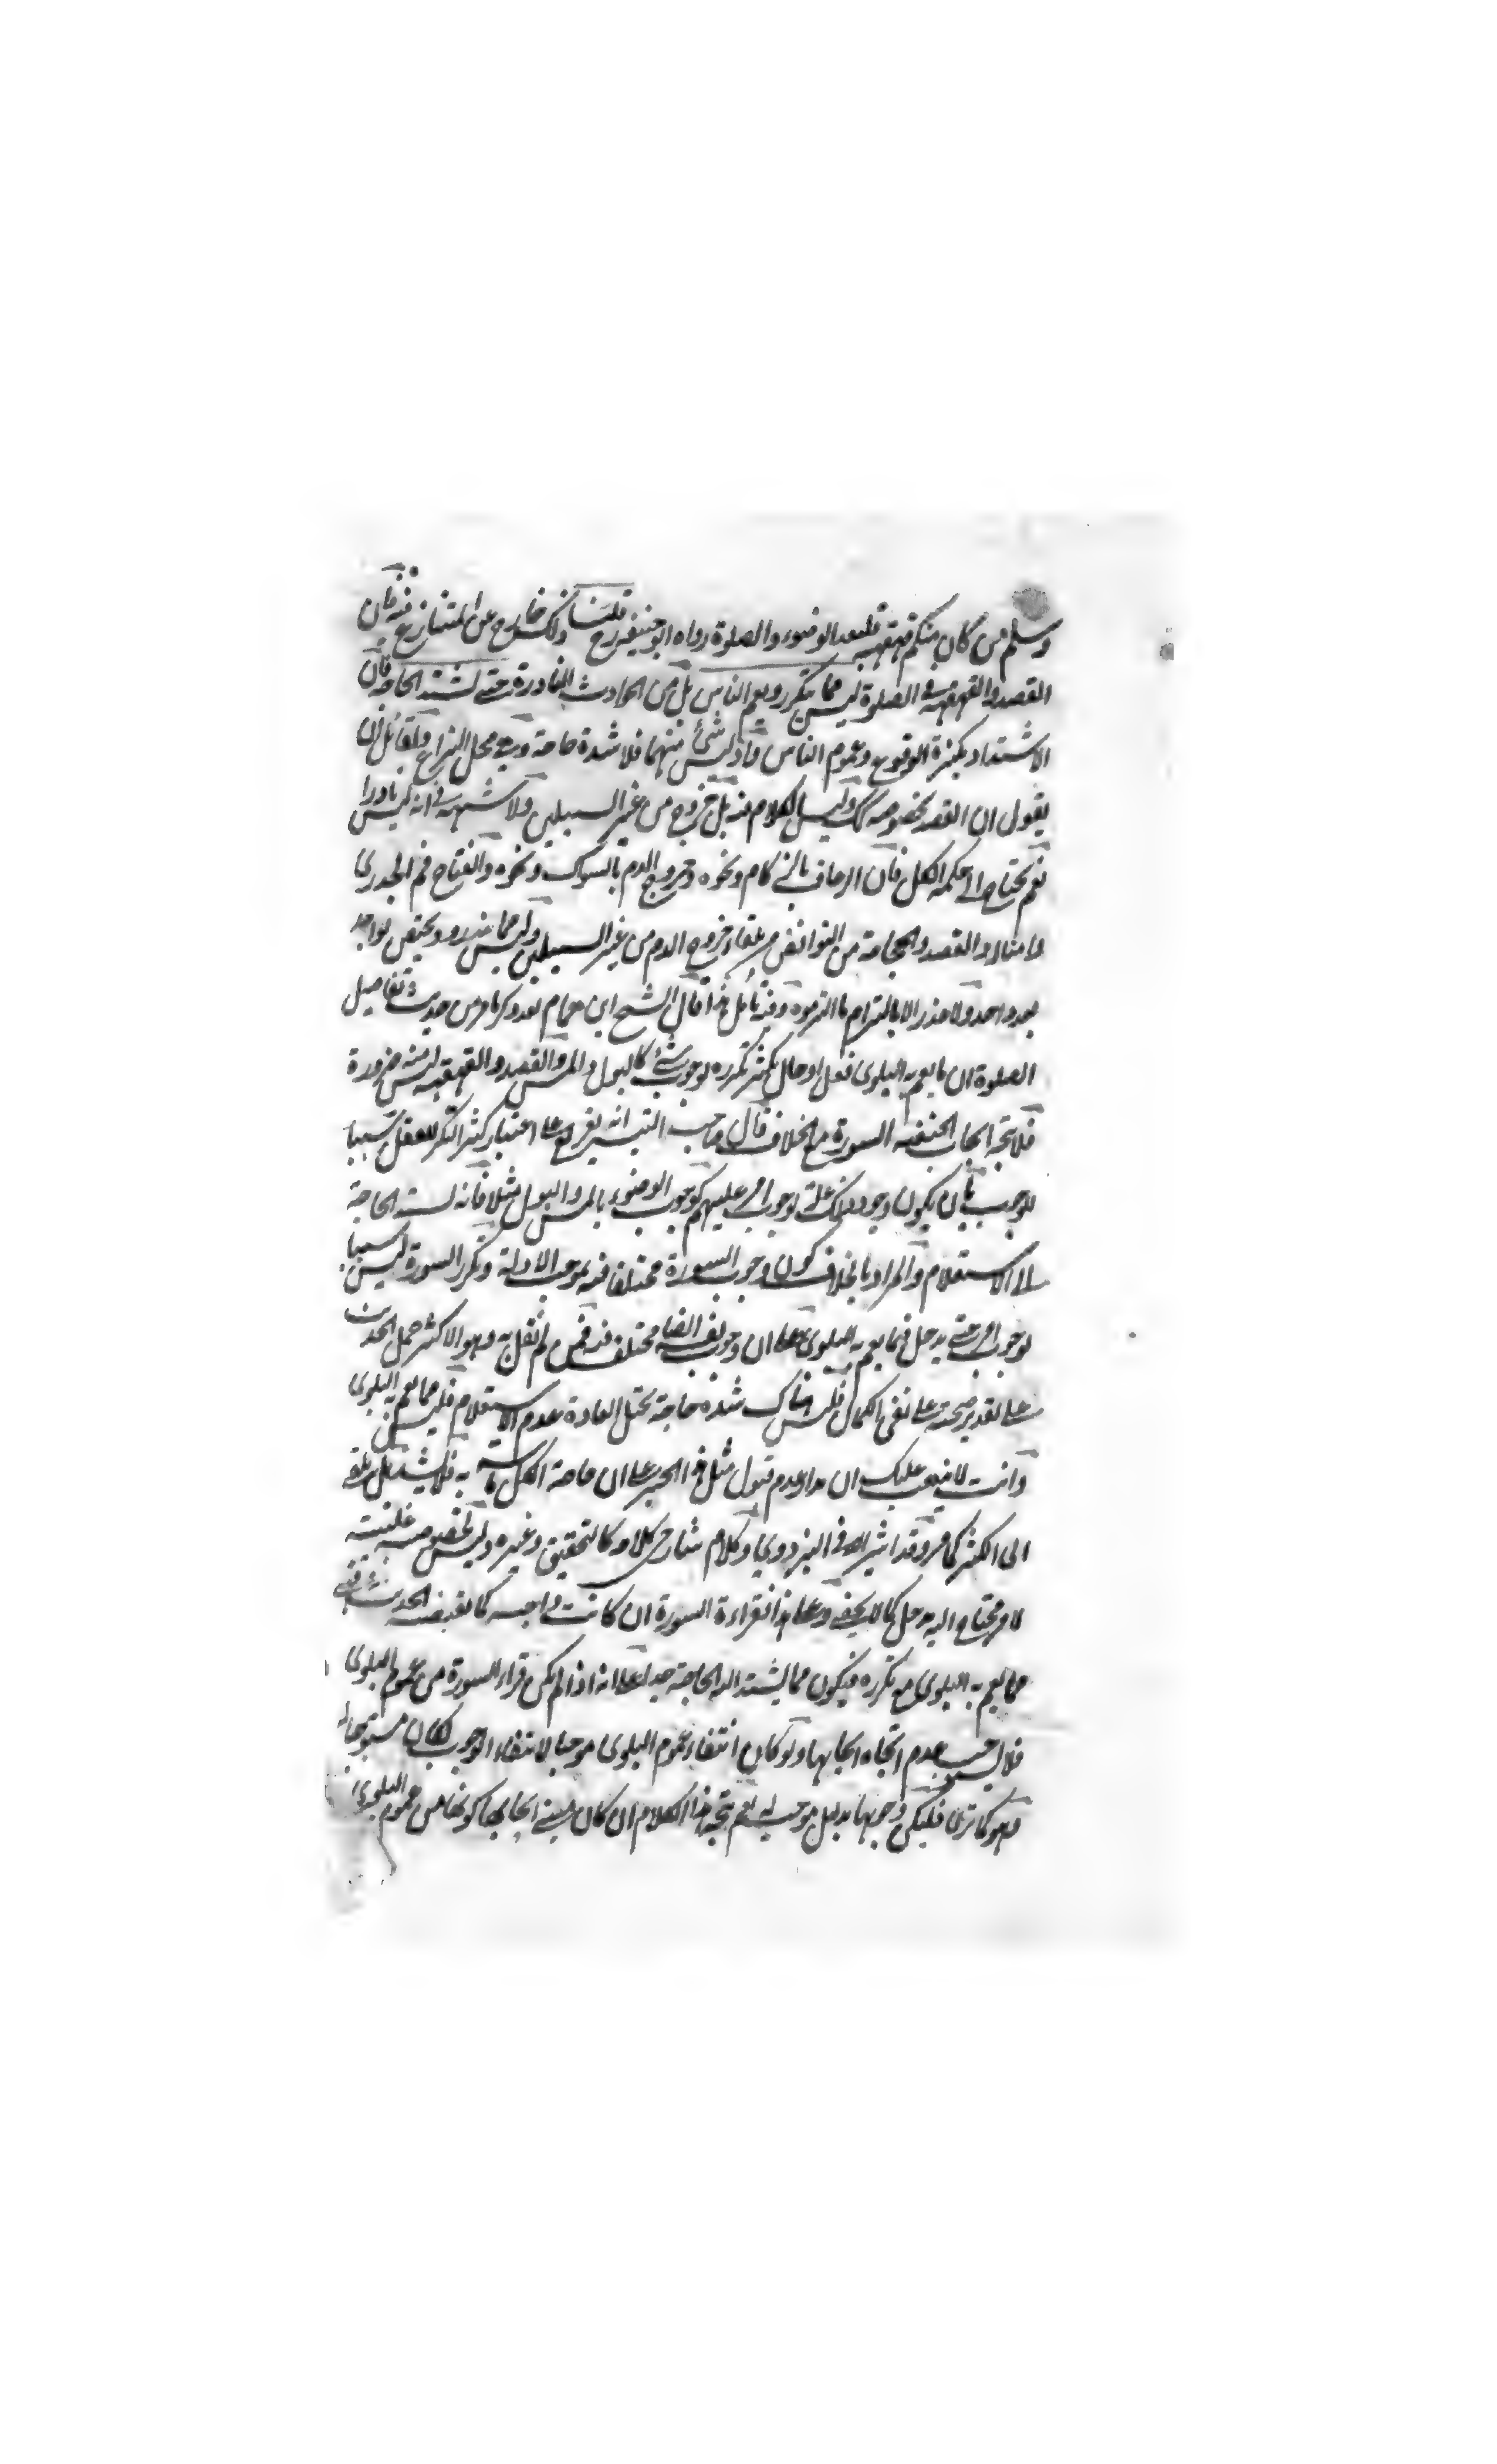 وسلم من كان منكم قهقهه فليعد الوضوء والصلوة رواه ابو حنيفه رح قلنا ذلك خارج عن المتنازع فيه فان
الفصد والقهقهة فى الصلوة ليس مما يتكرر ويعم الناس بل من الحوادث النادرة حتى تشتد الحاجة فان
الاشتداد بكثرة الوقوع وعموم الناس واذ ليس شئ منهما فلا شدة حاجة وهو محل النزاع ولقائل ان
يقول ان الفصد بخصوصه كك وليس الكلام فيه بل خروج من غير السبيلين ولا شبهة فى انه ليس نادرا
نعم يحتاج الى حكمه الكل فان الرعاف بالزكام ونحوه وخروج الدم بالسواك ونحوه وانفتاح فم الجدرى
والفصد والحجامة من النواقض خروج الدم من غير السبيلين وليس مما يندر ويختص بواحد
بعد واحد ولا مفر الا بالتزام ما التزموه وفيه تأمل هذا قال الشيخ ابن همام بعد ذكر ما مر من حديث تفاصيل
الصلوة ان ما يعم به البلوى فعل او حال يكثر تكرره لوجوب شئ كالبول والمس والفصد والقهقهة ليس منه ضرورة
فلا يتجه ايجاب الحنفيه السورة مع الخلاف قال صاحب التيسير انه تفريع على اعتبار كثرة التكرر للفعل سببا
للوجوب بان يكون وجود ذلك علة لوجوب امر عليهم كوجوب الوضوء بالمس والبول مثلا فانه تشتد الحاجة
الى الاستعلام والمراد بالخلاف كون وجوب السورة مختلفا فيه بموجب الادلة وتكرر السورة ليس سببا
لوجوب امر حتى يدخل فيما يعم به البلوى على ان وجوب مختلف فيه فمن لم يقل به وهو الاكثر حمل الحديث
على تقدير صحته على نفى الكمال فليس هناك شدة حاجة تحيل العادة عدم الاستعلام فليس مما يعم به البلوى
وانت لا يذهب عليك ان مدار عدم قبول مثل هذا الخبر على ان حاجة الكل ماسة به فلا يستقل بنقله
الى الكثير كما مر وقد اشير اليه فى البزدوى وكلام شارحى كلامه كالتحقيق وغيره وليس لخصوصية علية
لامر محتاج اليه مدخل كما لا يخفى وعلى هذا فقراءة السورة ان كانت واجبة كما يفيده الحديث
مما يعم به البلوى مع تكرره فيكون مما يشتد اليه الحاجة جدا على انه اذا لم يكن قراءة السورة من عموم البلوى
فلا ليس عدم اتجاه ايجابها ولو كان انتفاء عموم البلوى موجبا لانتفاء الوجوب لكان
وهو كما ترى فليكن وجوبها بدليل موجب له نعم يتجه هذا الكلام ان كان مبنى ايجابها كونها من عموم البلوى